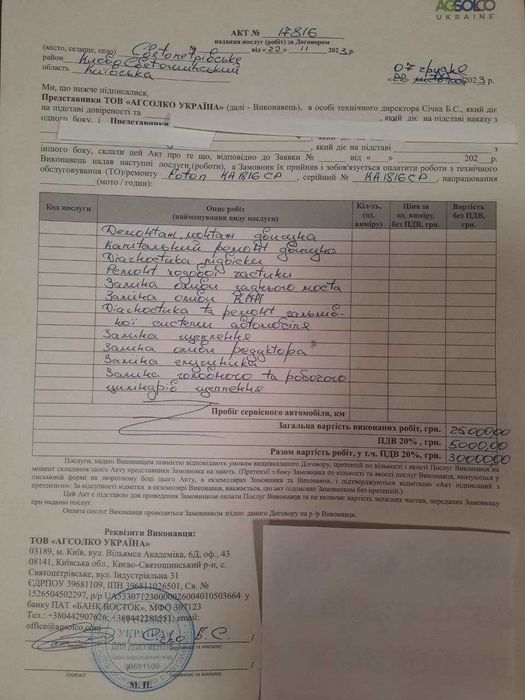 AGSOLCO
UKRAINE
АКТ № 17816
надання послуг (робіт) за Договором
(місто, селище, село) Святопетрівське № від « 22 » 11 2023 р.
район Києво Святошинський
область Київська 07 грудня
« 22 » листопада 2023 р.
Ми, що нижче підписалися,
Представники ТОВ «АГСОЛКО УКРАЇНА» (далі - Виконавець), в особі технічного директора Січка Б.С., який діє
на підставі довіреності та , який діє на підставі наказу з
одного боку, і Представники
, який діє на підставі з
іншого боку, склали цей Акт про те, що, відповідно до Заявки № від « » 202 р.
Виконавець надав наступні послуги (роботи), а Замовник їх прийняв і зобов'язується оплатити роботи з технічного
обслуговування (ТО)/ремонту Foton КА1816СР, серійний № КА1816СР, напрацювання
(мото / годин):
Код послуги Опис робіт (найменування виду послуги) Кіл-ть, (од. виміру) Ціна за од. виміру, без ПДВ, грн. Вартість без ПДВ, грн.
Демонтаж, монтаж двигуна
Капітальний ремонт двигуна
Діагностика підвіски
Ремонт ходової частини
Заміна оливи заднього моста
Заміна оливи КПП
Діагностика та ремонт гальмів-
ної системи автомобіля
Заміна щеплення
Заміна оливи редуктора
Заміна
Заміна головного та робочого
циліндрів щеплення
Пробіг сервісного автомобіля, км
Загальна вартість виконаних робіт, грн. 25000,00
ПДВ 20%, грн. 5000,00
Разом вартість робіт, у т.ч. ПДВ 20%, грн. 30000,00
Послуги, надані Виконавцем повністю відповідають умовам вищевказаного Договору, претензій по кількості і якості Послуг Виконавця на
момент складання цього Акту Представники Замовника на мають. (Претензії з боку Замовника по кількості та якості послуг Виконавця, вказуються у
письмовій формі на зворотному боці цього Акту, в екземплярах Замовника та Виконавця, і підтверджуються відміткою «Акт підписаний з
претензією». За відсутності відмітки в екземплярі Виконавця, вважається, що акт підписано Замовником без претензій.)
Цей Акт є підставою для проведення Замовником оплати Послуг Виконавця та не включає вартість запасних частин, переданих Замовнику
при наданні послуг.
Оплата послуг Виконавця проводиться Замовником згідно даного Договору на р/р Виконавця.
Реквізити Виконавця:
ТОВ «АГСОЛКО УКРАЇНА»
03189, м. Київ, вул. Вільямса Академіка, 6Д, оф., 43
08141, Київська обл., Києво-Святошинський р-н, с.
Святопетрівське, вул. Індустріальна 31
ЄДРПОУ 39681109, ІПН 396811026501, Св. №
1526504502297, р/р UA533071230000026004010503664 у
банку ПАТ «БАНК ВОСТОК», МФО 307123
Тел.: +380442907626; +380442281551; email:
office@agsolco.com
УКРАЇНА
ДЛЯ ДОКУМЕНТІВ
39681109
Б. С.
(підпис) (прізвище та ініціали)
(підпис) (прізвище та ініціали)
М. П.